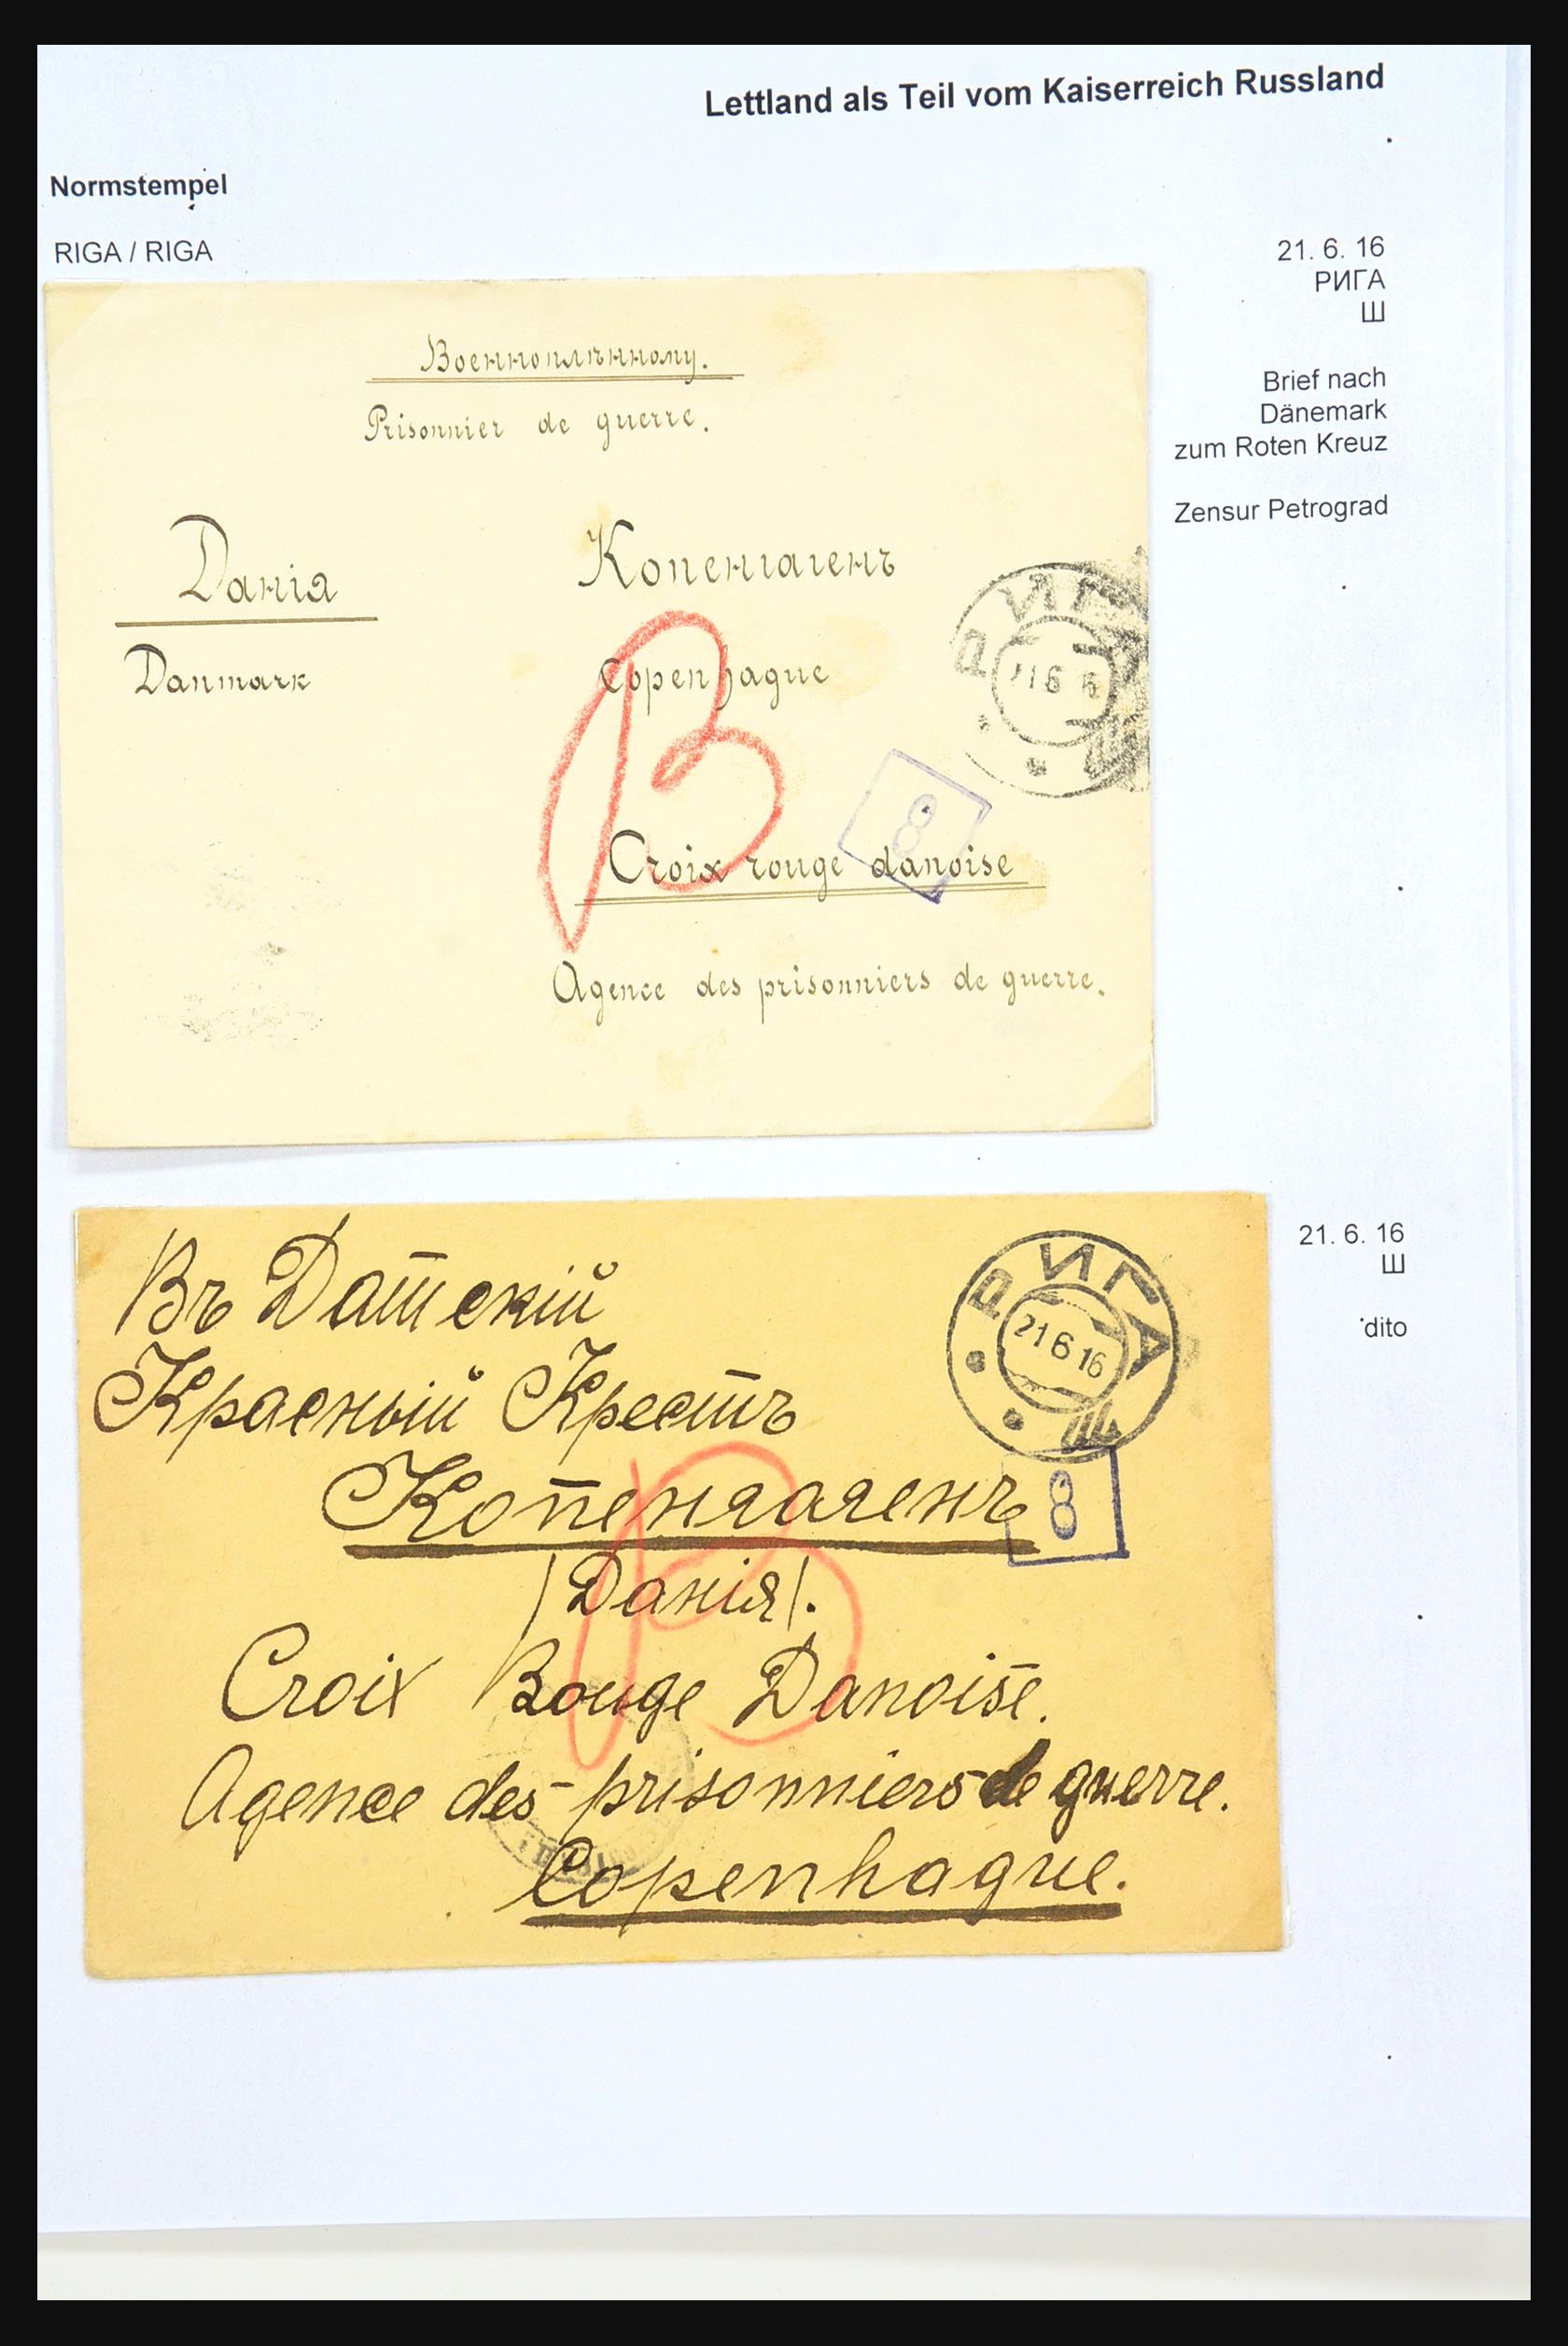 Lettland als Teil vom Kaiserreich Russland
Normstempel
RIGA / RIGA
21. 6. 16
РИГА
Ш
Brief nach
Dänemark
zum Roten Kreuz
Zensur Petrograd
Военноплѣнному.
Prisonnier de guerre.
Данія
Danmark
Копенгагенъ
Copenhague
Croix rouge danoise
Agence des prisonniers de guerre.
РИГА
8
21. 6. 16
Ш
dito
Въ Датскій
Красный Крестъ
Копенгагенъ
/Данія/.
Croix Rouge Danoise.
Agence des prisonniers de guerre.
Copenhague.
РИГА
21 6 16
Ш
8